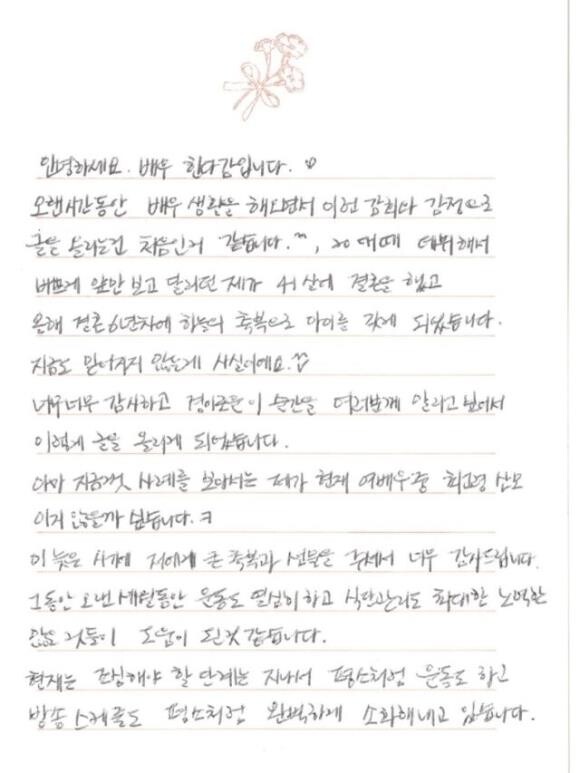 안녕하세요. 배우 한다감입니다.
오랜시간동안 배우 생활을 해오면서 이런 감회와 감정으로
글을 올리는건 처음인거 같습니다.^^, 20대때 데뷔해서
바쁘게 앞만 보고 달리던 제가 41살에 결혼을 했고
올해 결혼 6년차에 하늘의 축복으로 아이를 갖게 되었습니다.
지금도 믿어지지 않는게 사실이에요.
너무너무 감사하고 경이로운 이 순간을 여러분께 알리고 싶어서
이렇게 글을 올리게 되었습니다.
아마 지금껏 사례를 보아서는 제가 현재 여배우중 최고령 산모
이지 않을까 싶습니다.ㅋ
이 늦은 시기에 저에게 큰 축복과 선물을 주셔서 너무 감사드립니다.
그동안 오랜 세월동안 운동도 열심히 하고 식단관리도 최대한 노력한
것들이 도움이 된것 같습니다.
현재는 조심해야 할 단계는 지나서 평소처럼 운동도 하고
방송 스케줄도 평소처럼 완벽하게 소화해내고 있습니다.